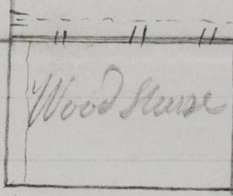 Wood House